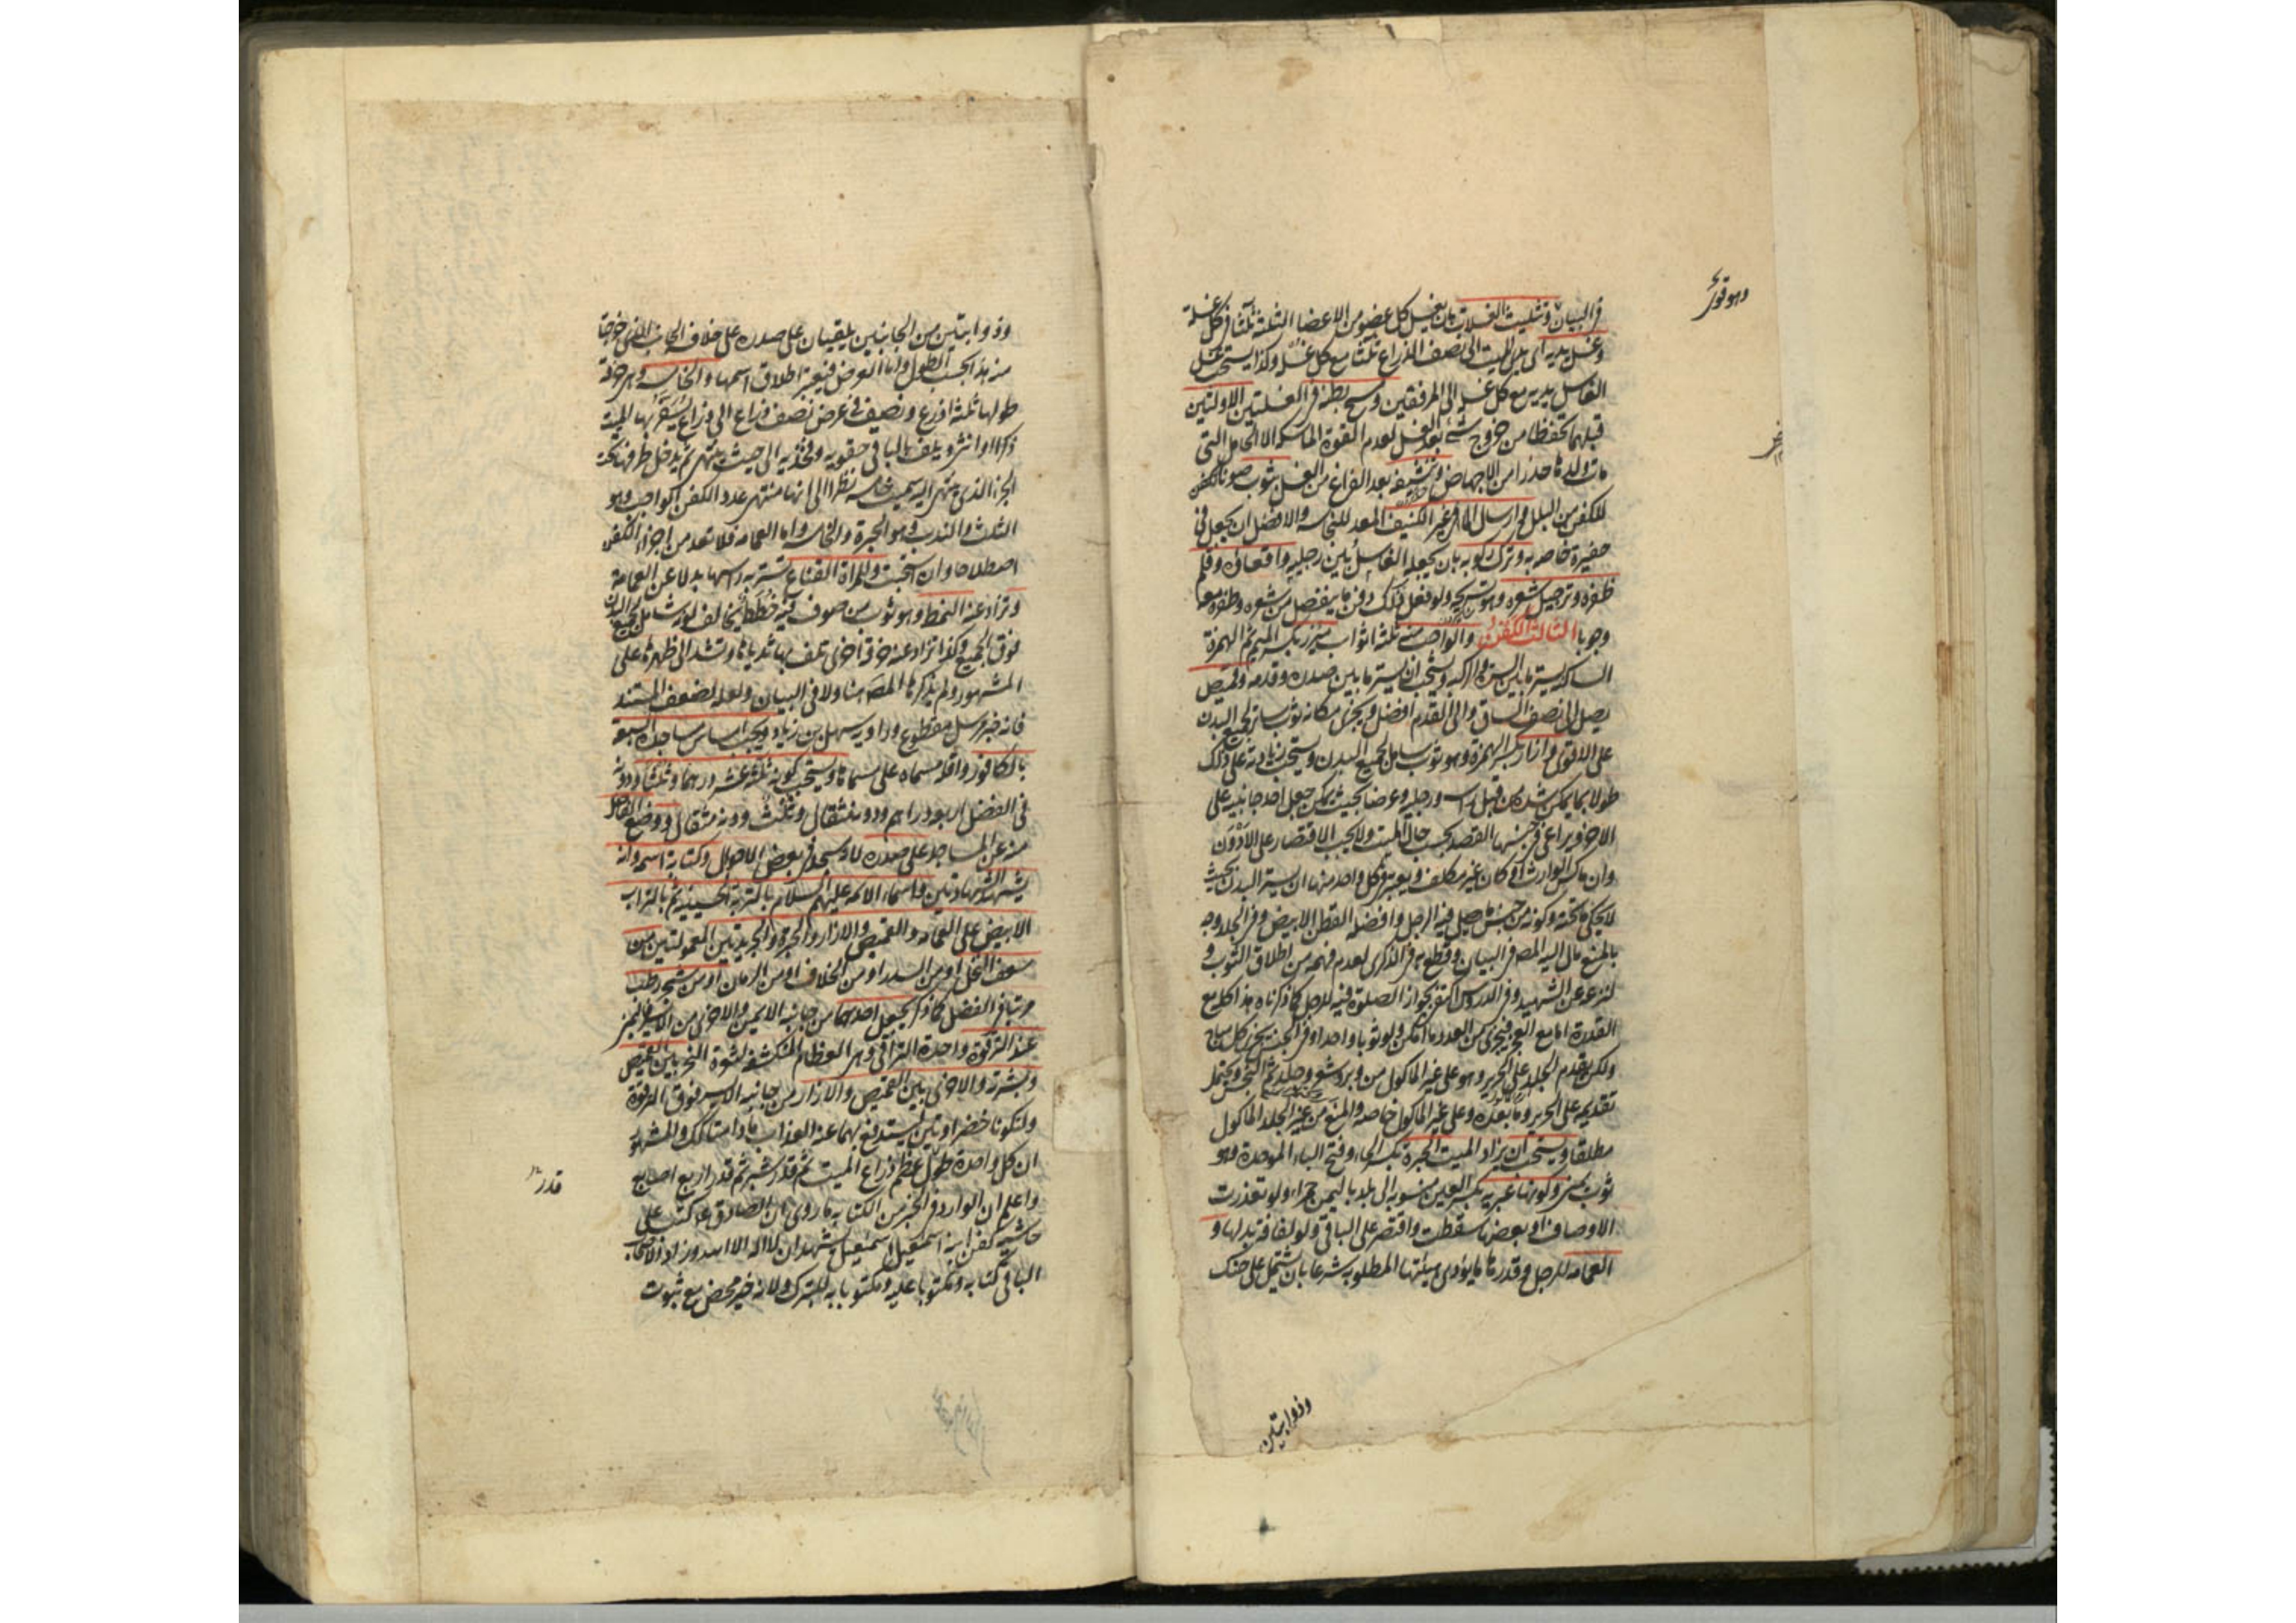 في البيان وتثليث الغسلات بان يغسل كل عضو من الاعضاء الثلثة ثلثا في كل غسلة
وغسل يديه اى يدى الميت الى نصف الذراع ثلثا مع كل غسل وكذا يستحب غسل
الغاسل يديه مع كل غسل الى المرفقين ومسح بطنه في الغسلتين الاولتين
قبلهما تحفظا من خروج شئ بعد الغسل لعدم القوة الماسكة الا الحامل التى
مات ولدها حذرا من الاجهاض وتنشيفه بعد الفراغ من الغسل بثوب صونا للكفن
للكفن من البلل وارسال الماء في غير الكنيف المعد للنجاسة والافضل ان يجعل في
حفيرة خاصة به وترك ركوبه بان يجعله الغاسل بين رجليه واقعاده وقلم
ظفره وترجيل شعره وهو تسريحه ولو فعل ذلك دفن ما ينفصل من شعره وظفره معه
وجوبا الثالث الكفن والواجب منه ثلثة اثواب مئزر بكسر الميم ثم الهمزة
الساكنة يستر ما بين السرة والركبة ويستحب ان يستر ما بين صدره وقدمه وقميص
يصل الى نصف الساق والى القدم افضل ويجزى مكانه ثوب ساتر لجميع البدن
على الاقوى وازار بكسر الهمزة وهو ثوب شامل لجميع البدن ويستحب زيادته على ذلك
طولا بما يمكن شده من قبل راسه ورجليه وعرضا بحيث يمكن جعل احد جانبيه على
الاخر ويراعى في جنسها القصد بحسب حال الميت ولا يجب الاقتصار على الادون
وان ماكس الوارث او كان غير مكلف ويعتبر في كل واحد منها ان يستر البدن بحيث
لا يحكى ما تحته وكونه من جنس ما يصلى فيه الرجل وافضله القطن الابيض وفي الجلد وجه
بالمنع مال اليه المصـ في البيان وقطع به في الذكرى لعدم فهمه من اطلاق الثوب و
لنزعه عن الشهيد وفي الدروس اكتفى بجواز الصلوة فيه للرجل كما ذكرناه هذا كله مع
القدرة اما مع العجز فيجزى من العدد ما امكن ولو ثوبا واحدا وفي الجنس يجزى كل مباح
ولكن يقدم الجلد على الحرير وهو على غير الماكول من وبر وشعر وجلد ثم النجس ويحتمل
تقديمه على الحرير وما بعده وعلى غير الماكول خاصة والمنع من غير الجلد الماكول
مطلقا ويستحب ان يزاد الميت الحبرة بكسر الحاء وفتح الباء الموحدة وهو
ثوب يمنى وكونها عبرية بكسر العين منسوبة الى بلد باليمن حمراء ولو تعذرت
الاوصاف او بعضها سقطت واقتصر على الباقى ولو لفافة بدلها و
العمامة للرجل وقدرها ما يؤدى هيئتها المطلوبة شرعا بان تشتمل على حنك
وذوابتين
وذوابتين من الجانبين يلقيان على صدره على خلاف الجانب الذى خرجتا
منه هذا بحسب الطول واما العرض فيعتبر اطلاق اسمها والخامسة وهى خرقة
طولها ثلثة اذرع ونصف في عرض نصف ذراع الى ذراع يثفر بها الميت
ذكرا او انثى ويلف بالباقى حقويه وفخذيه الى حيث ينتهى ثم يدخل طرفها تحت
الجزء الذى ينتهى اليه سميت خامسة نظرا الى انها منتهى عدد الكفن الواجب وهو
الثلث والندب وهو الحبرة والخامسة واما العمامة فلا تعد من اجزاء الكفن
اصطلاحا وان استحبت وللمراة القناع تستر به راسها بدلا عن العمامة
وتزاد عنه النمط وهو ثوب من صوف فيه خطط يخالف لونه شامل لجميع البدن
فوق الجميع وكذا تزاد عنه خرقة اخرى تلف بها ثدياها وتشد الى ظهرها على
المشهور ولم يذكرها المصـ هنا ولا في البيان ولعله لضعف المستند
فانه خبر مرسل مقطوع وراويه سهل بن زياد ويجب امساس مساجده السبعة
بالكافور واقله مسماه على مسماها ويستحب كونه ثلثة عشر درهما وثلثا ودونه
في الفضل اربعة دراهم ودونه مثقال وثلث ودونه مثقال ووضع الفاضل
منه عن المساجد على صدره لانه مسجد في بعض الاحوال وكتابة اسمه وانه
يشهد الشهادتين واسماء الائمة عليهم السلام بالتربة الحسينية ثم بالتراب
الابيض على العمامة والقميص والازار والحبرة والجريدتين المعمولتين من
سعف النخل او من السدر او من الخلاف او من الرمان او من شجر رطب
مرتبا في الفضل كما ذكر يجعل احدهما من جانبه الايمن والاخرى من الايسر فاليمنى
عند الترقوة واحدة التراقى وهى العظام المكتنفة لثغرة النحر بين القميص
وبشرته والاخرى بين القميص والازار من جانبه الايسر فوق الترقوة
ولتكونا خضراوتين ليستدفع بهما عنه العذاب ما دامتا كذلك والمشهور
ان كل واحدة طول عظم ذراع الميت ثم قدر شبر ثم قدر اربع اصابع
واعلم ان الوارد في الخبر من الكتابة ما روى ان الصادق ع كتب على
حاشية كفن ابنه اسمعيل اسمعيل يشهد ان لا اله الا الله وزاد الاصحاب
الباقى كتابة ومكتوبا عليه ومكتوبا به للتبرك ولانه خير محض مع ثبوت
قدر